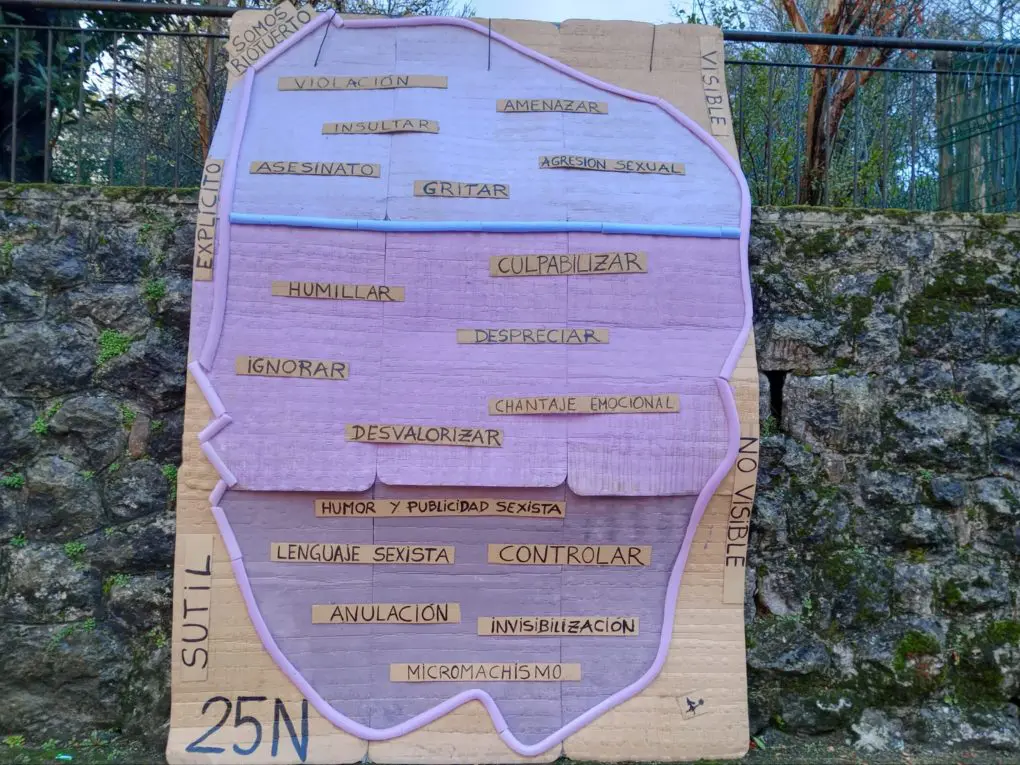 SOMOS
RIOTUERTO
VISIBLE
VIOLACIÓN
AMENAZAR
INSULTAR
ASESINATO
AGRESION SEXUAL
GRITAR
EXPLICITO
CULPABILIZAR
HUMILLAR
DESPRECIAR
IGNORAR
CHANTAJE EMOCIONAL
DESVALORIZAR
NO VISIBLE
HUMOR Y PUBLICIDAD SEXISTA
LENGUAJE SEXISTA
CONTROLAR
SUTIL
ANULACIÓN
INVISIBILIZACIÓN
MICROMACHISMO
25N